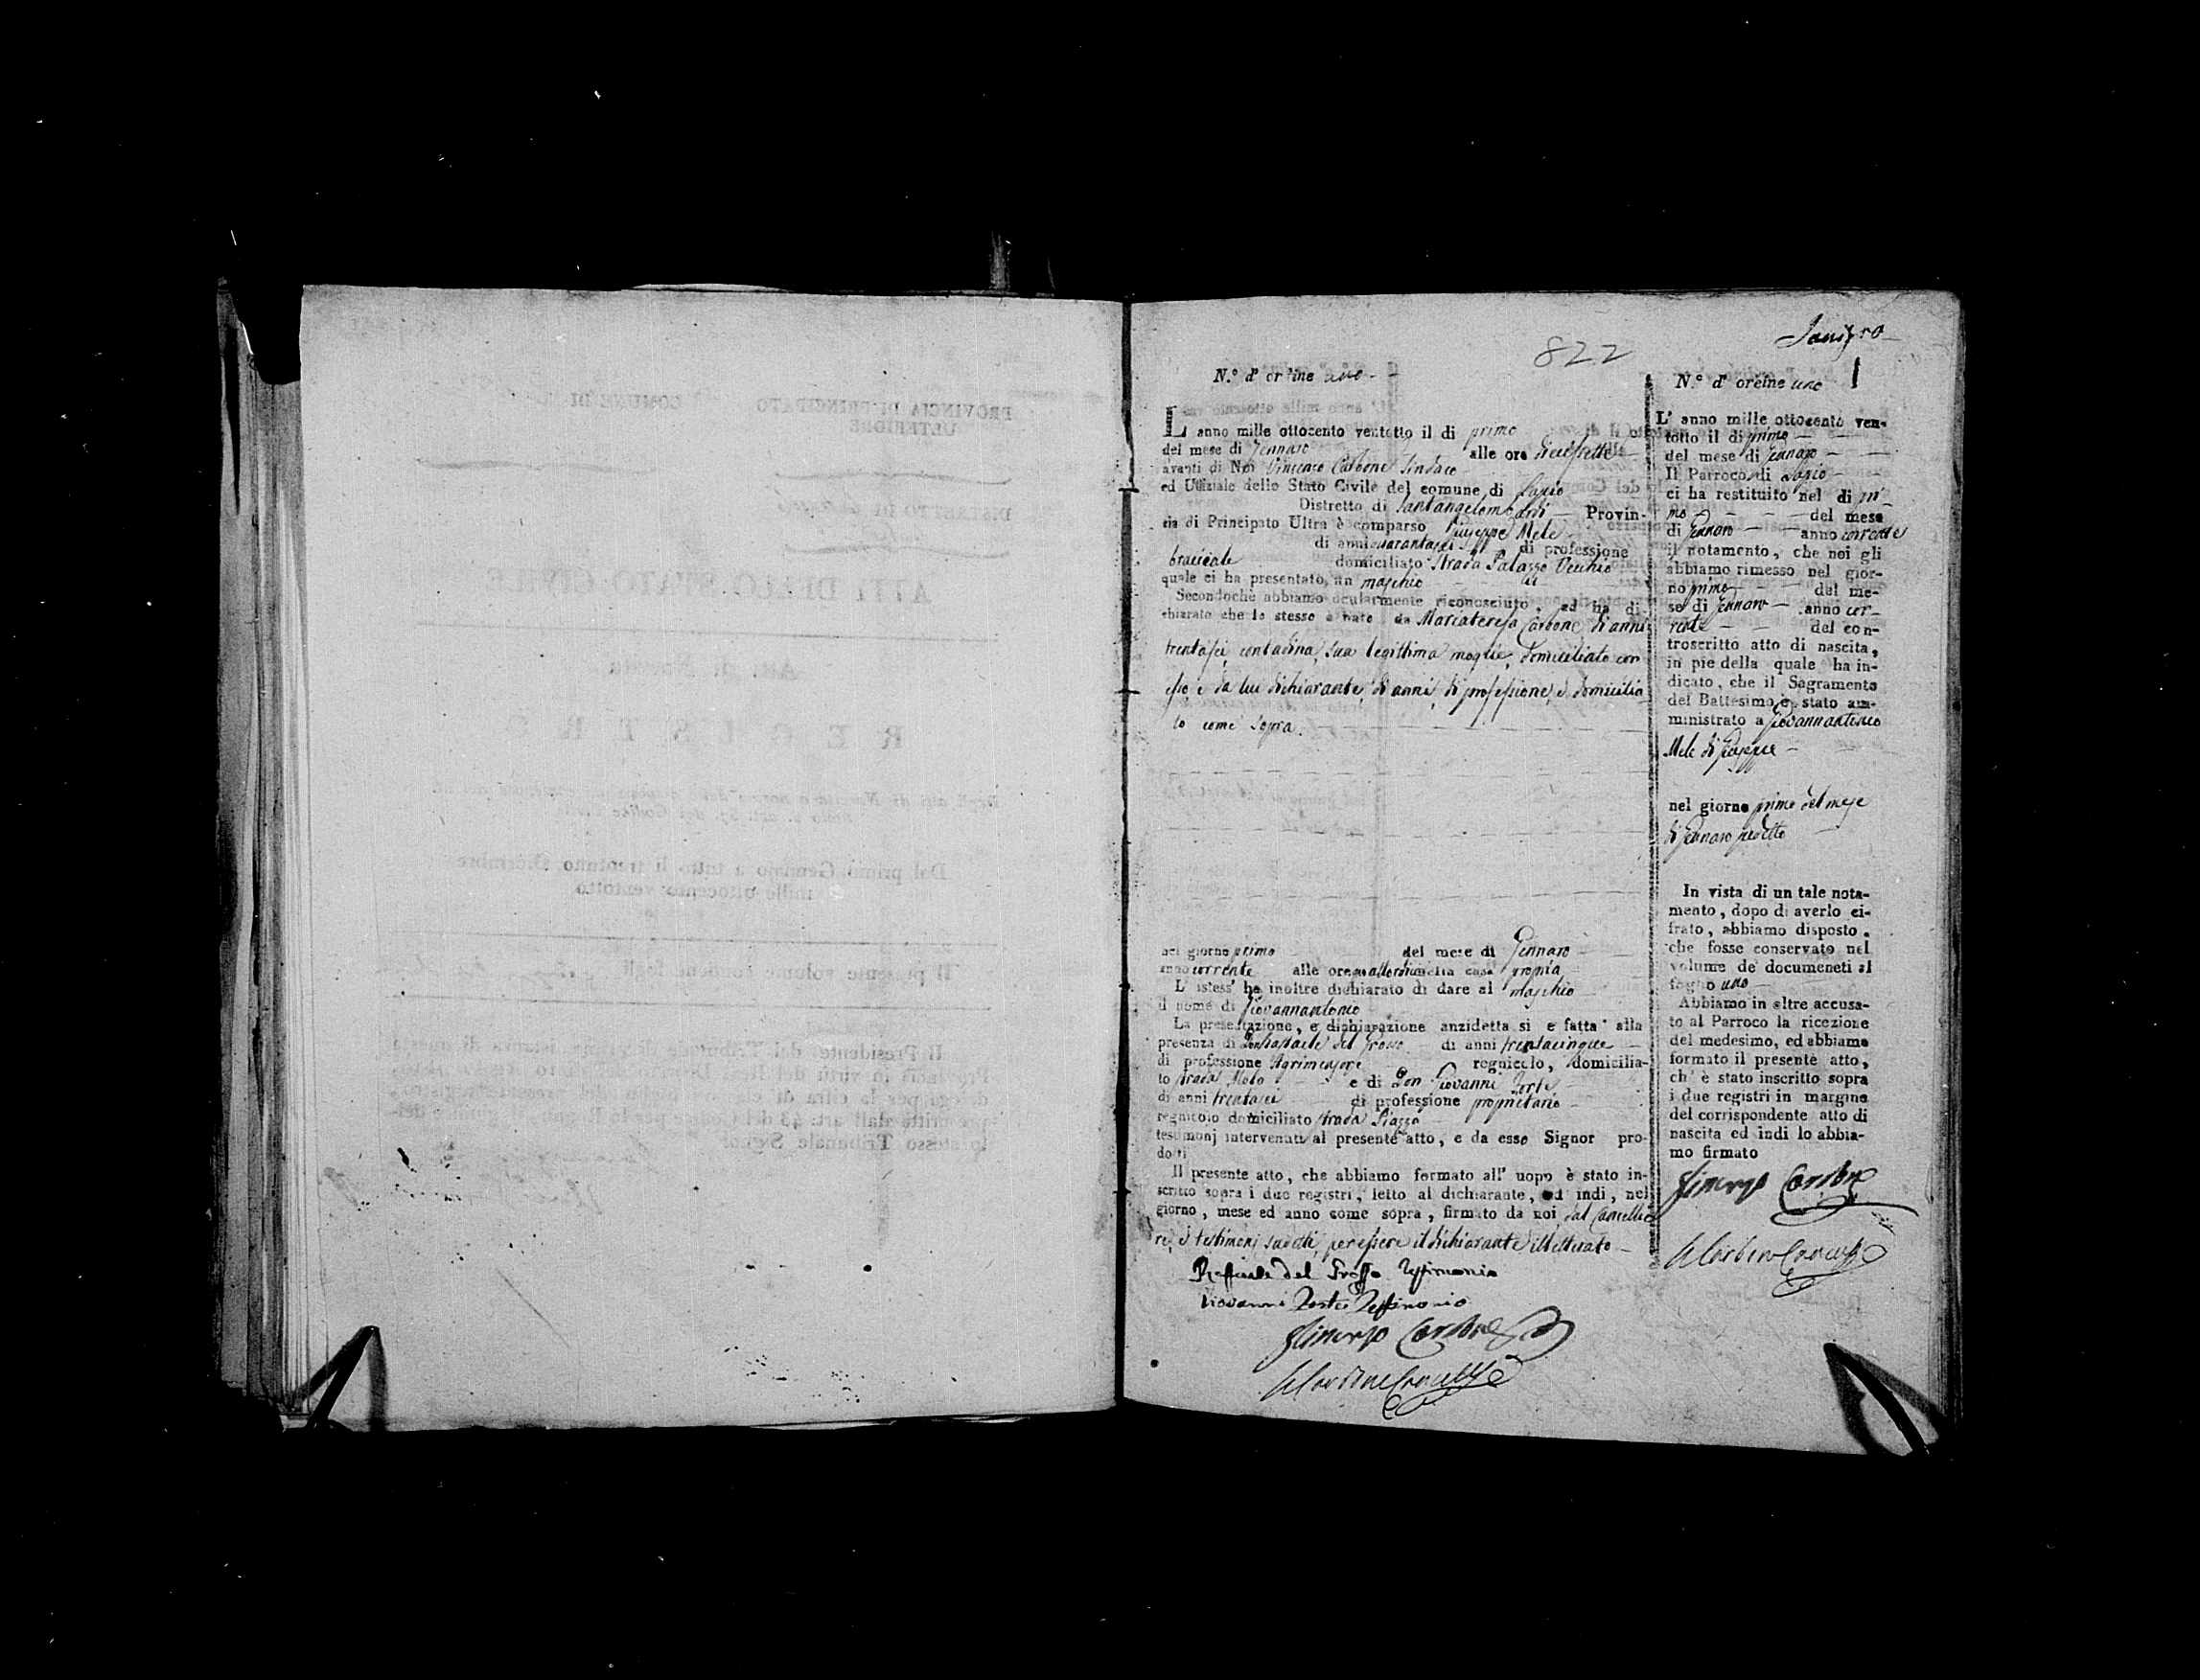 822
N.° d' ordine uno
L' anno mille ottocento ventotto il di primo
del mese di Gennaro alle ore diecisette
avanti di Noi Vincenzo Carbone Sindaco
ed Uffiziale dello Stato Civile del comune di Lapio
Distretto di Santangelombardi Provin-
cia di Principato Ultra è comparso Giuseppe Mele
di anni quarantasei di professione
bracciale domiciliato Strada Palazzo Vecchio
quale ci ha presentato un maschio
Secondochè abbiamo ocularmente riconosciuto, ed ha di-
chiarato che lo stesso è nato da Mariateresa Carbone di anni
trentasei, contadina, sua legittima moglie, domiciliata con
esso, e da lui dichiarante, di anni, di professione, e domicilia-
to come sopra.
nel giorno primo del mese di Gennaro
anno corrente alle ore quattordici nella casa propria
L' istess' ha inoltre dichiarato di dare al maschio
il nome di Giovannantonio
La presentazione, e dichiarazione anzidetta si è fatta alla
presenza di Don Raffaele del Grosso di anni trentacinque
di professione Agrimensore regnicolo, domicilia-
to strada e di Don Giovanni Forte
di anni trentasei di professione proprietario
regnicolo domiciliato strada Piazza
testimonj intervenuti al presente atto, e da esso Signor pro-
dotti
Il presente atto, che abbiamo formato all' uopo è stato in-
scritto sopra i due registri, letto al dichiarante, ed indi, nel
giorno, mese ed anno come sopra, firmato da noi, dal Cancellie
re, e testimonj sudetti, per essere il dichiarante illetterato
Raffaele del Grosso Testimonio
Giovanni Forte Testimonio
Vincenzo Carbone
N.° d' ordine uno 1
L' anno mille ottocento ven-
totto il di primo
del mese di Gennaro
Il Parroco di Lapio
ci ha restituito nel di pri-
mo del mese
di Gennaro anno corrente
il notamento, che noi gli
abbiamo rimesso nel gior-
no primo del me-
se di Gennaro anno cor-
rente del con-
troscritto atto di nascita,
in piè della quale ha in-
dicato, che il Sagramento
del Battesimo è stato am-
ministrato a Giovannantonio
Mele di Giuseppe
nel giorno primo del mese
di Gennaro predetto
In vista di un tale nota-
mento, dopo di averlo ci-
frato, abbiamo disposto,
che fosse conservato nel
volume de' documeneti al
foglio uno
Abbiamo in oltre accusa-
to al Parroco la ricezione
del medesimo, ed abbiamo
formato il presente atto,
ch' è stato inscritto sopra
i due registri in margine
del corrispondente atto di
nascita ed indi lo abbia-
mo firmato
Vincenzo Carbone